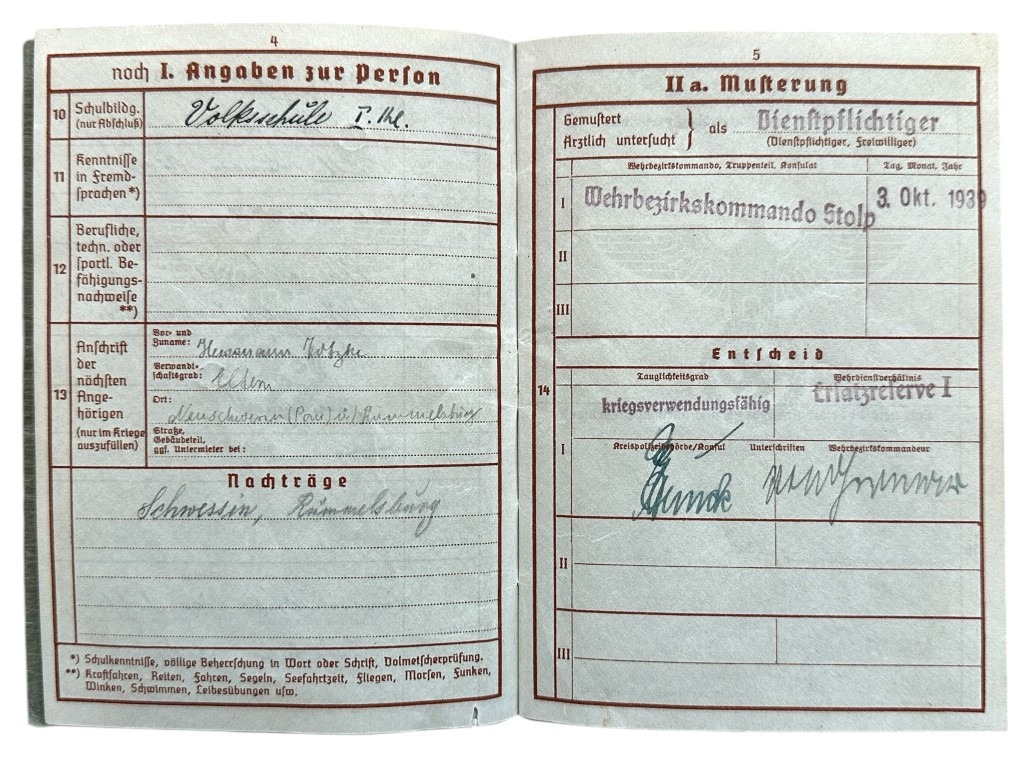 4
noch I. Angaben zur Person
10 Schulbildg. (nur Abschluß)
Volksschule I. Kl.
11 Kenntnisse in Fremdsprachen *)
12 Berufliche, techn. oder sportl. Befähigungsnachweise **)
13 Anschrift der nächsten Angehörigen (nur im Kriege auszufüllen)
Vor- und Zuname: Hermann
Verwandtschaftsgrad: Eltern
Ort: Neuschwerin (Pom) Rummelsburg
Straße, Gebäudeteil, ggf. Untermieter bei:
Nachträge
Schwessin, Rummelsburg
*) Schulkenntnisse, völlige Beherrschung in Wort oder Schrift, Dolmetscherprüfung.
**) Kraftfahren, Reiten, Fahren, Segeln, Seefahrtzeit, Fliegen, Morsen, Funken,
Winken, Schwimmen, Leibesübungen usw.
5
II a. Musterung
Gemustert
Ärztlich untersucht } als Dienstpflichtiger
(Dienstpflichtiger, Freiwilliger)
Wehrbezirkskommando, Truppenteil, Konsulat Tag, Monat, Jahr
I Wehrbezirkskommando Stolp 3. Okt. 1939
II
III
Entscheid
14
Tauglichkeitsgrad Wehrdienstverhältnis
I kriegsverwendungsfähig Ersatzreserve I
Kreispolizeibehörde/Konsul Unterschriften Wehrbezirkskommandeur
II
III